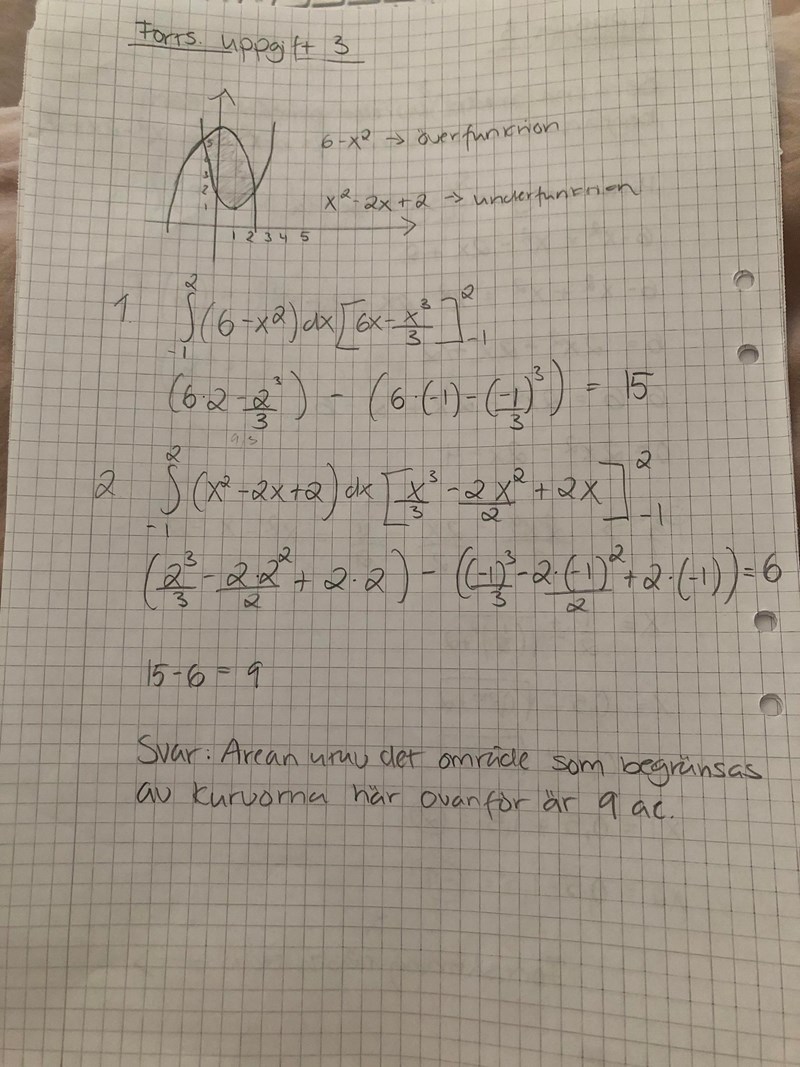 Forts. uppgift 3
6-x² → överfunktion
x²-2x+2 → underfunktion
5
3
2
1
1 2 3 4 5
1. ∫₋₁² (6-x²)dx [6x - x³/3]₋₁²
(6·2 - 2³/3) - (6·(-1) - (-1)³/3) = 15
2 ∫₋₁² (x²-2x+2)dx [x³/3 - 2x²/2 + 2x]₋₁²
(2³/3 - 2·2²/2 + 2·2) - ((-1)³/3 - 2·(-1)²/2 + 2·(-1)) = 6
15-6 = 9
Svar: Arean urav det område som begränsas
av kurvorna här ovanför är 9 ae.